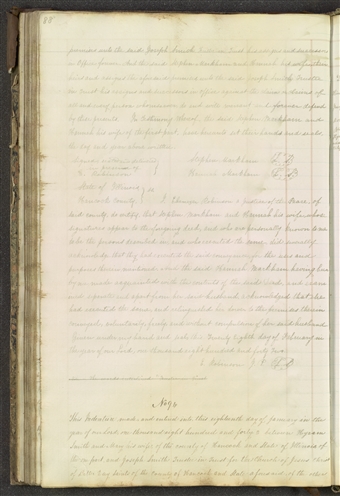 88
presents with the said Joseph Smith Trustee in Trust his assigns and successors
in Office forever. And the said Stephen Markham and Hannah his wife
heirs and assigns the aforesaid premises with the said Joseph Smith Trustee
in Trust his assigns and successors in Office against the claim or demand of
all and every person whomsoever do and will warrant and forever defend
by these presents. In Testimony Whereof, the said Stephen Markham and
Hannah his wife of the first part, have hereunto set their hands and seals
the day and year above written
Stephen Markham
Hannah Markham
E. Robinson
State of Illinois
Hancock County I Ebenezer Robinson a justice of the Peace of
said county, do certify that Stephen Markham and Hannah his wife whose
signatures appear to the foregoing deed, and who are personally known to me
to be the persons described in and who executed the same did severally
acknowledge that they had executed the said conveyance for the uses and
purposes therein mentioned. And the said Hannah Markham having been
by me made acquainted with the contents of the said deed, and exam-
ined separate and apart from her said husband acknowledged that she
had executed the same, and relinquished her dower to the premises therein
conveyed voluntarily, freely and without compulsion of her said husband
Given under my hand and seal this Twenty Eighth day of February in
the year of our Lord one thousand eight hundred and forty two
E Robinson J. P.
No 94
This Indenture made and entered into this eighteenth day of January in the
year of our Lord one thousand eight hundred and forty 2 between Hyrum
Smith and Mary his wife of the county of Hancock and State of Illinois of
the one part and Joseph Smith Trustee in Trust for the Church of Jesus Christ
of Latter Day Saints of the County of Hancock and State aforesaid of the other